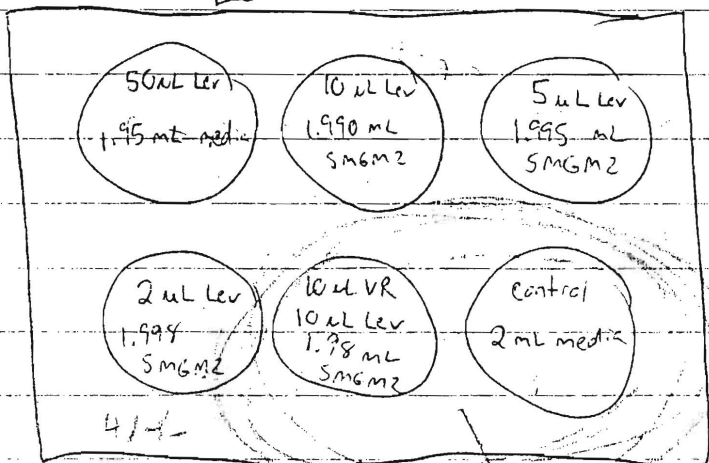 50uL Lev
1.95 mL media
10 uL Lev
1.990 mL
SMGM2
5 uL Lev
1.995 mL
SMGM2
2 uL Lev
1.998
SMGM2
10 uL VR
10 uL Lev
1.98 mL
SMGM2
control
2 mL media